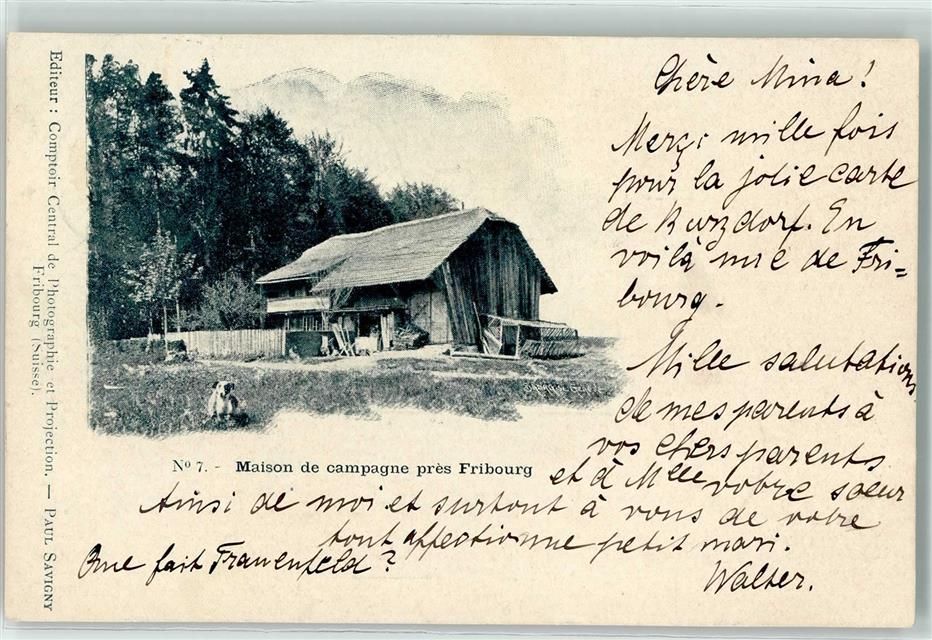 Editeur : Comptoir Central de Photographie et Projection. — PAUL SAVIGNY
Fribourg (Suisse).
Nº 7. - Maison de campagne près Fribourg
Chère Mina!
Merçi mille fois
pour la jolie carte
de Kurzdorf. En
voilà une de Fri=
bourg.
Mille salutations
de mes parents à
vos chers parents
et à Mlle votre soeur
Ainsi de moi et surtout à vous de votre
tout affectionne petit mari.
Que fait Frauenfeld?
Walter.